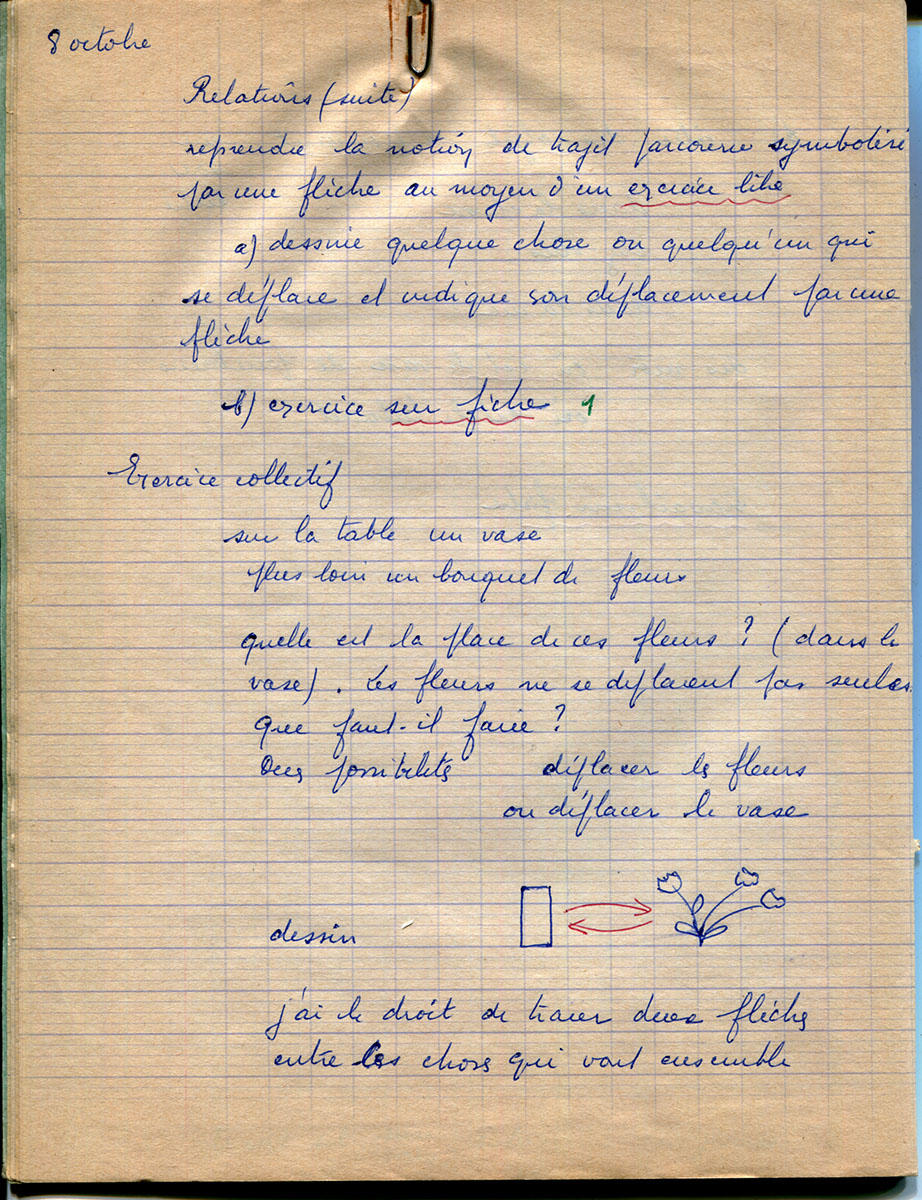 8 octobre
Relations (suite)
reprendre la notion de trajet parcouru symbolisé
par une flèche au moyen d'un exercice libre
a) dessine quelque chose ou quelqu'un qui
se déplace et indique son déplacement par une
flèche
b) exercice sur fiche 1
Exercice collectif
sur la table un vase
plus loin un bouquet de fleurs
quelle est la place de ces fleurs ? (dans le
vase). Les fleurs ne se déplacent pas seules.
que faut-il faire ?
Deux possibilités déplacer les fleurs
ou déplacer le vase
dessin
j'ai le droit de tracer deux flèches
entre les choses qui vont ensemble